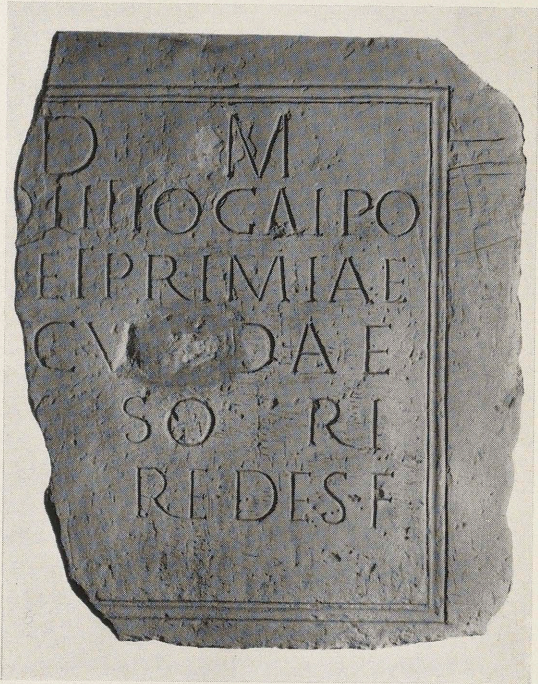 D M
GAIPO
ET PRIMIAE
CV DAE
SO RI
REDES F